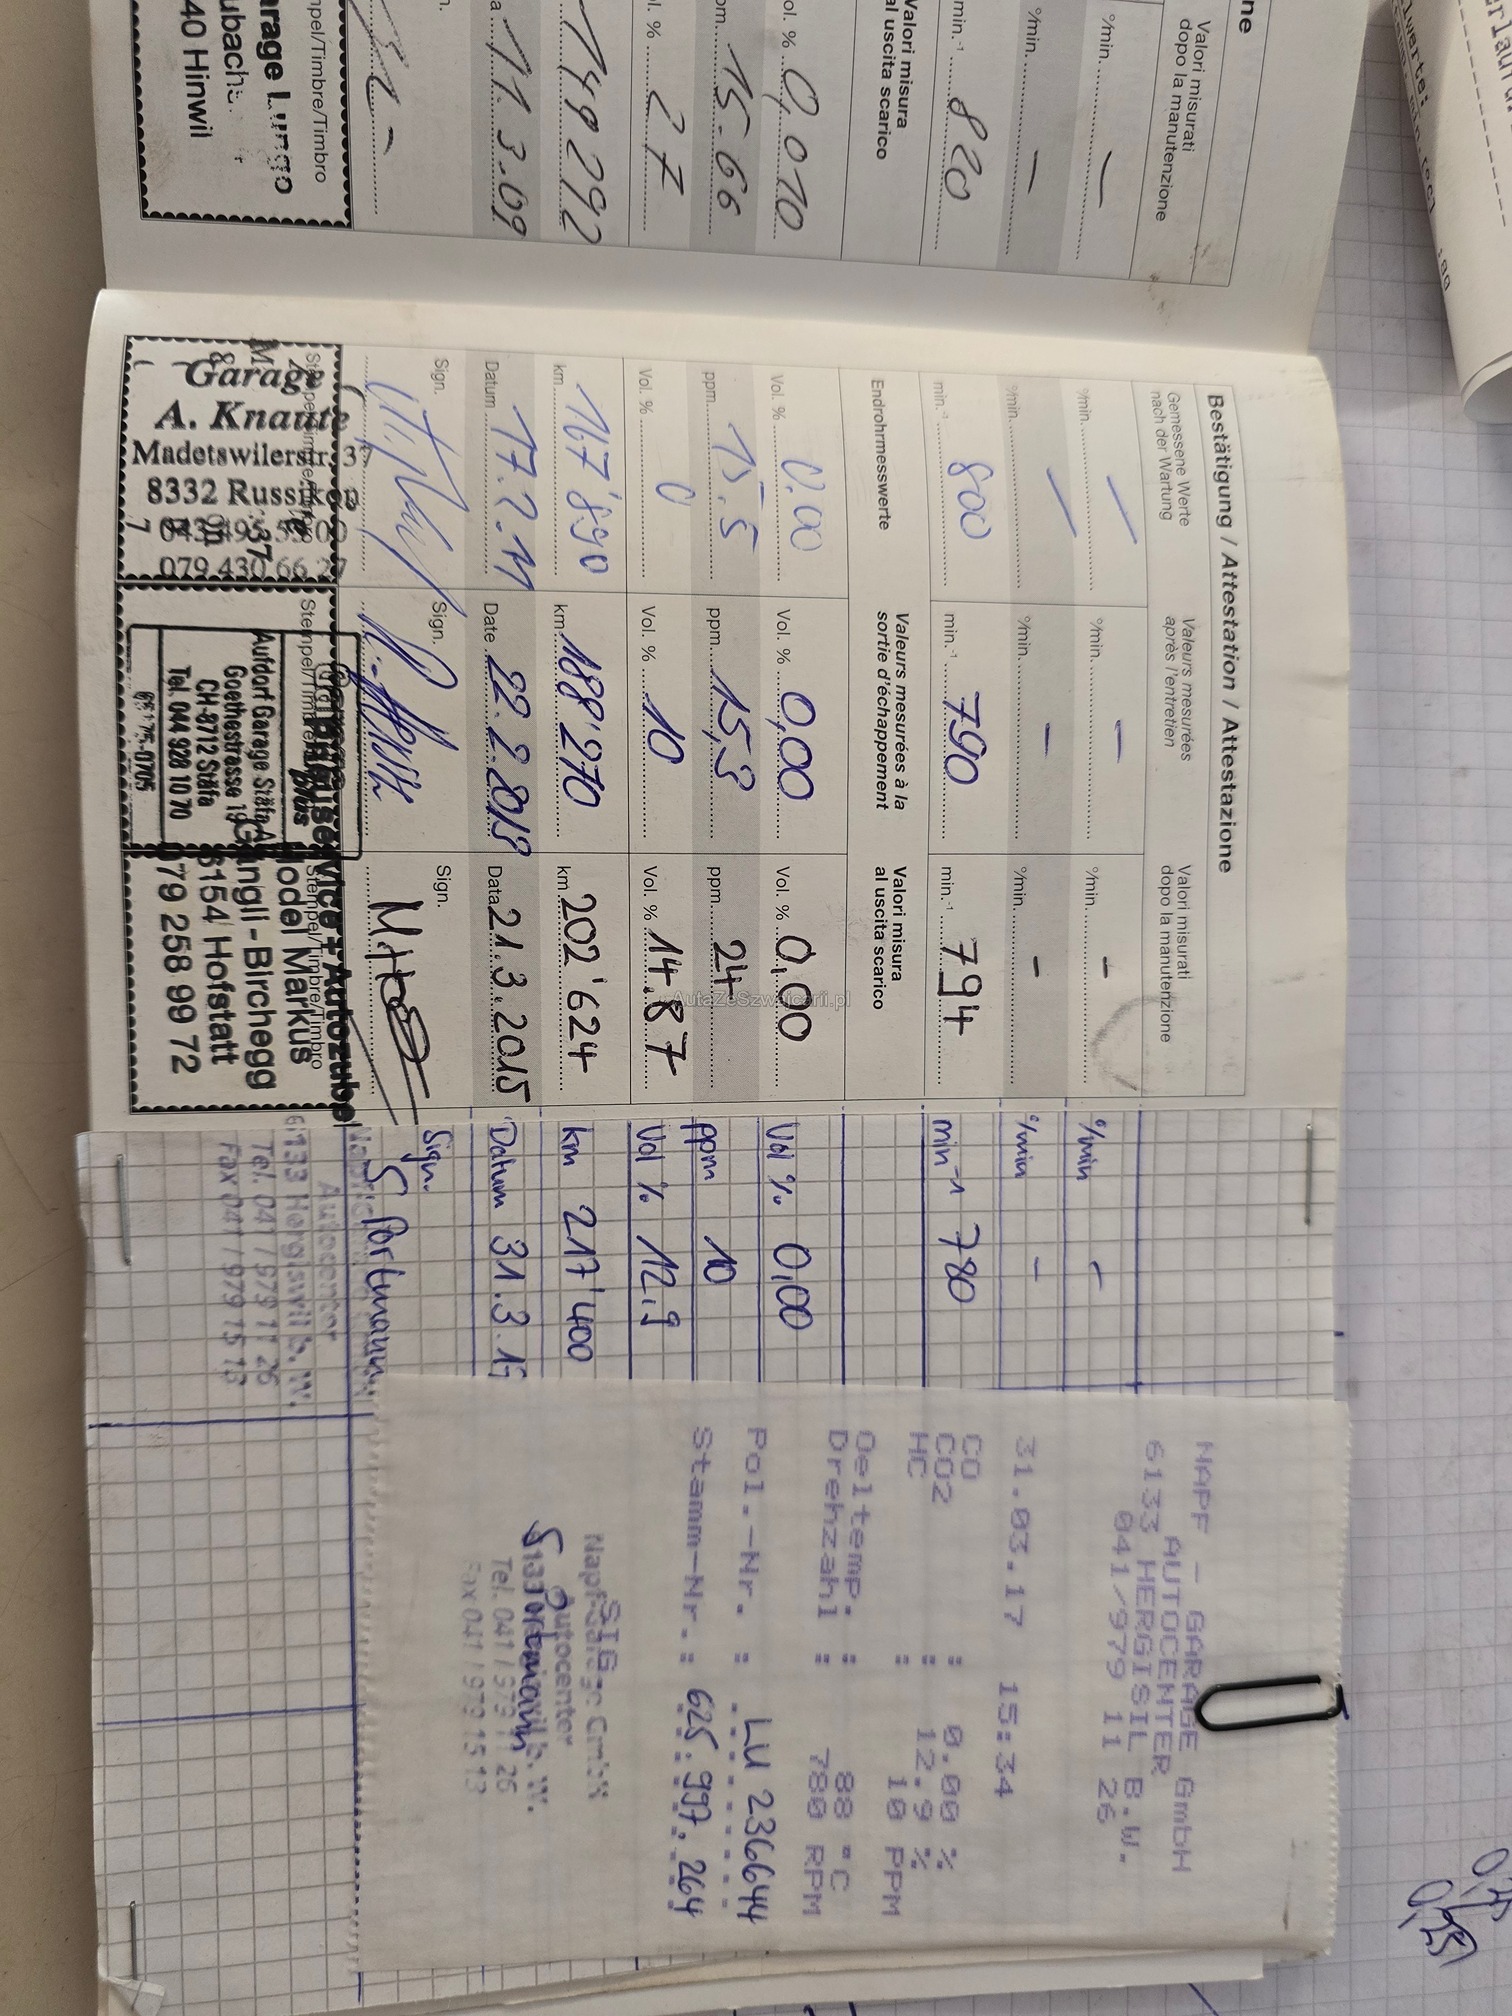 ne
Valori misurati
dopo la manutenzione
°/min.
—
°/min.
—
min.⁻¹ 820
Valori misura
al uscita scarico
ol. % 0,010
pm. 15.66
l. % 27
149292
a 11.3.09
n.
mpel/Timbre/Timbro
arage Lungo
ubachs
40 Hinwil
Bestätigung / Attestation / Attestazione
Gemessene Werte
nach der Wartung
°/min. —
°/min. —
min.⁻¹ 800
Endrohrmesswerte
Vol. % 0.00
ppm. 15.5
Vol. % 0
km 167'890
Datum 17.2.11
Sign.
Garage
A. Knaute
Madetswilerstr. 37
8332 Russikon
079 430 66 27
Valeurs mesurées
après l'entretien
°/min. —
°/min. —
min.⁻¹ 790
Valeurs mesurées à la
sortie d'échappement
Vol. % 0,00
ppm. 15,3
Vol. % 10
km 188'270
Date 22.2.2013
Sign.
Stempel/Timbre
plus
Aufdorf Garage Stäfa A
Goethestrasse 19
CH-8712 Stäfa
Tel. 044 928 10 70
Valori misurati
dopo la manutenzione
°/min. –
°/min. –
min.⁻¹ 794
Valori misura
al uscita scarico
Vol. % 0,00
ppm. 24
Vol. % 14.87
km 202'624
Data 21.3.2015
Sign.
Stempel/Timbre/Timbro
service + Autozube
odel Markus
ngli - Birchegg
6154 Hofstatt
79 258 99 72
AutaZeSzwajcarii.pl
°/min –
°/min –
min⁻¹ 780
Vol % 0,00
ppm 10
Vol % 12,9
km 217'400
Datum 31.3.17
Sign. S Portmann
Autocenter
6133 Hergiswil b. W.
Tel. 041 / 979 11 26
Fax 041 / 979 15 13
NAPF - GARAGE GmbH
AUTOCENTER
6133 HERGISIL B.W.
041/979 11 26
31.03.17 15:34
CO : 0.00 %
CO2 : 12.9 %
HC : 10 PPM
Oeltemp. : 88 °C
Drehzahl : 780 RPM
Pol.-Nr. : LU 236644
Stamm-Nr. : 625.997.264
SIG
Napf-Garage GmbH
Autocenter
S Portmann
Tel. 041 / 979 11 26
Fax 041 / 979 15 13